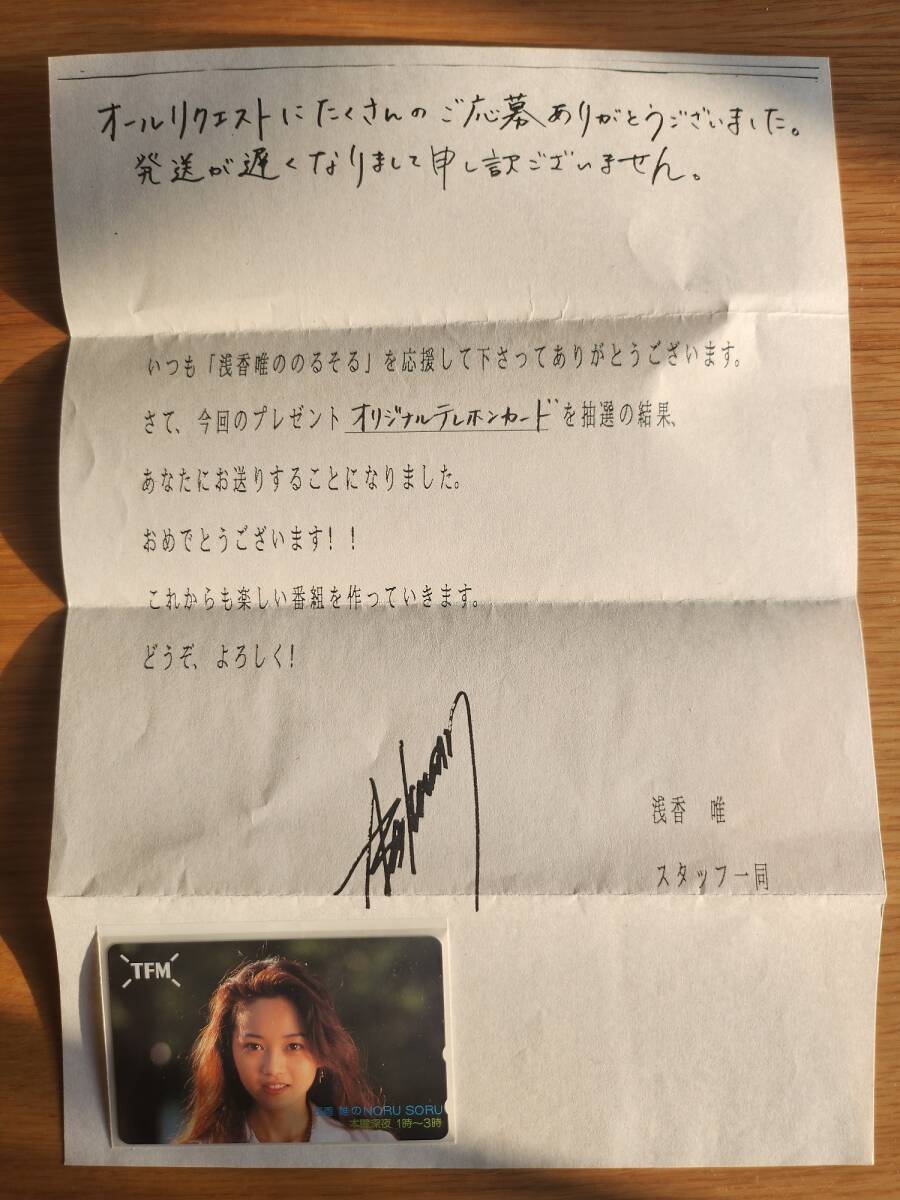 オールリクエストにたくさんのご応募ありがとうございました。
発送が遅くなりまして申し訳ございません。
いつも「浅香唯ののるそる」を応援して下さってありがとうございます。
さて、今回のプレゼント オリジナルテレホンカード を抽選の結果、
あなたにお送りすることになりました。
おめでとうございます!!
これからも楽しい番組を作っていきます。
どうぞ、よろしく!
浅香 唯
スタッフ一同
TFM
浅香 唯のNORU SORU
木曜深夜 1時〜3時